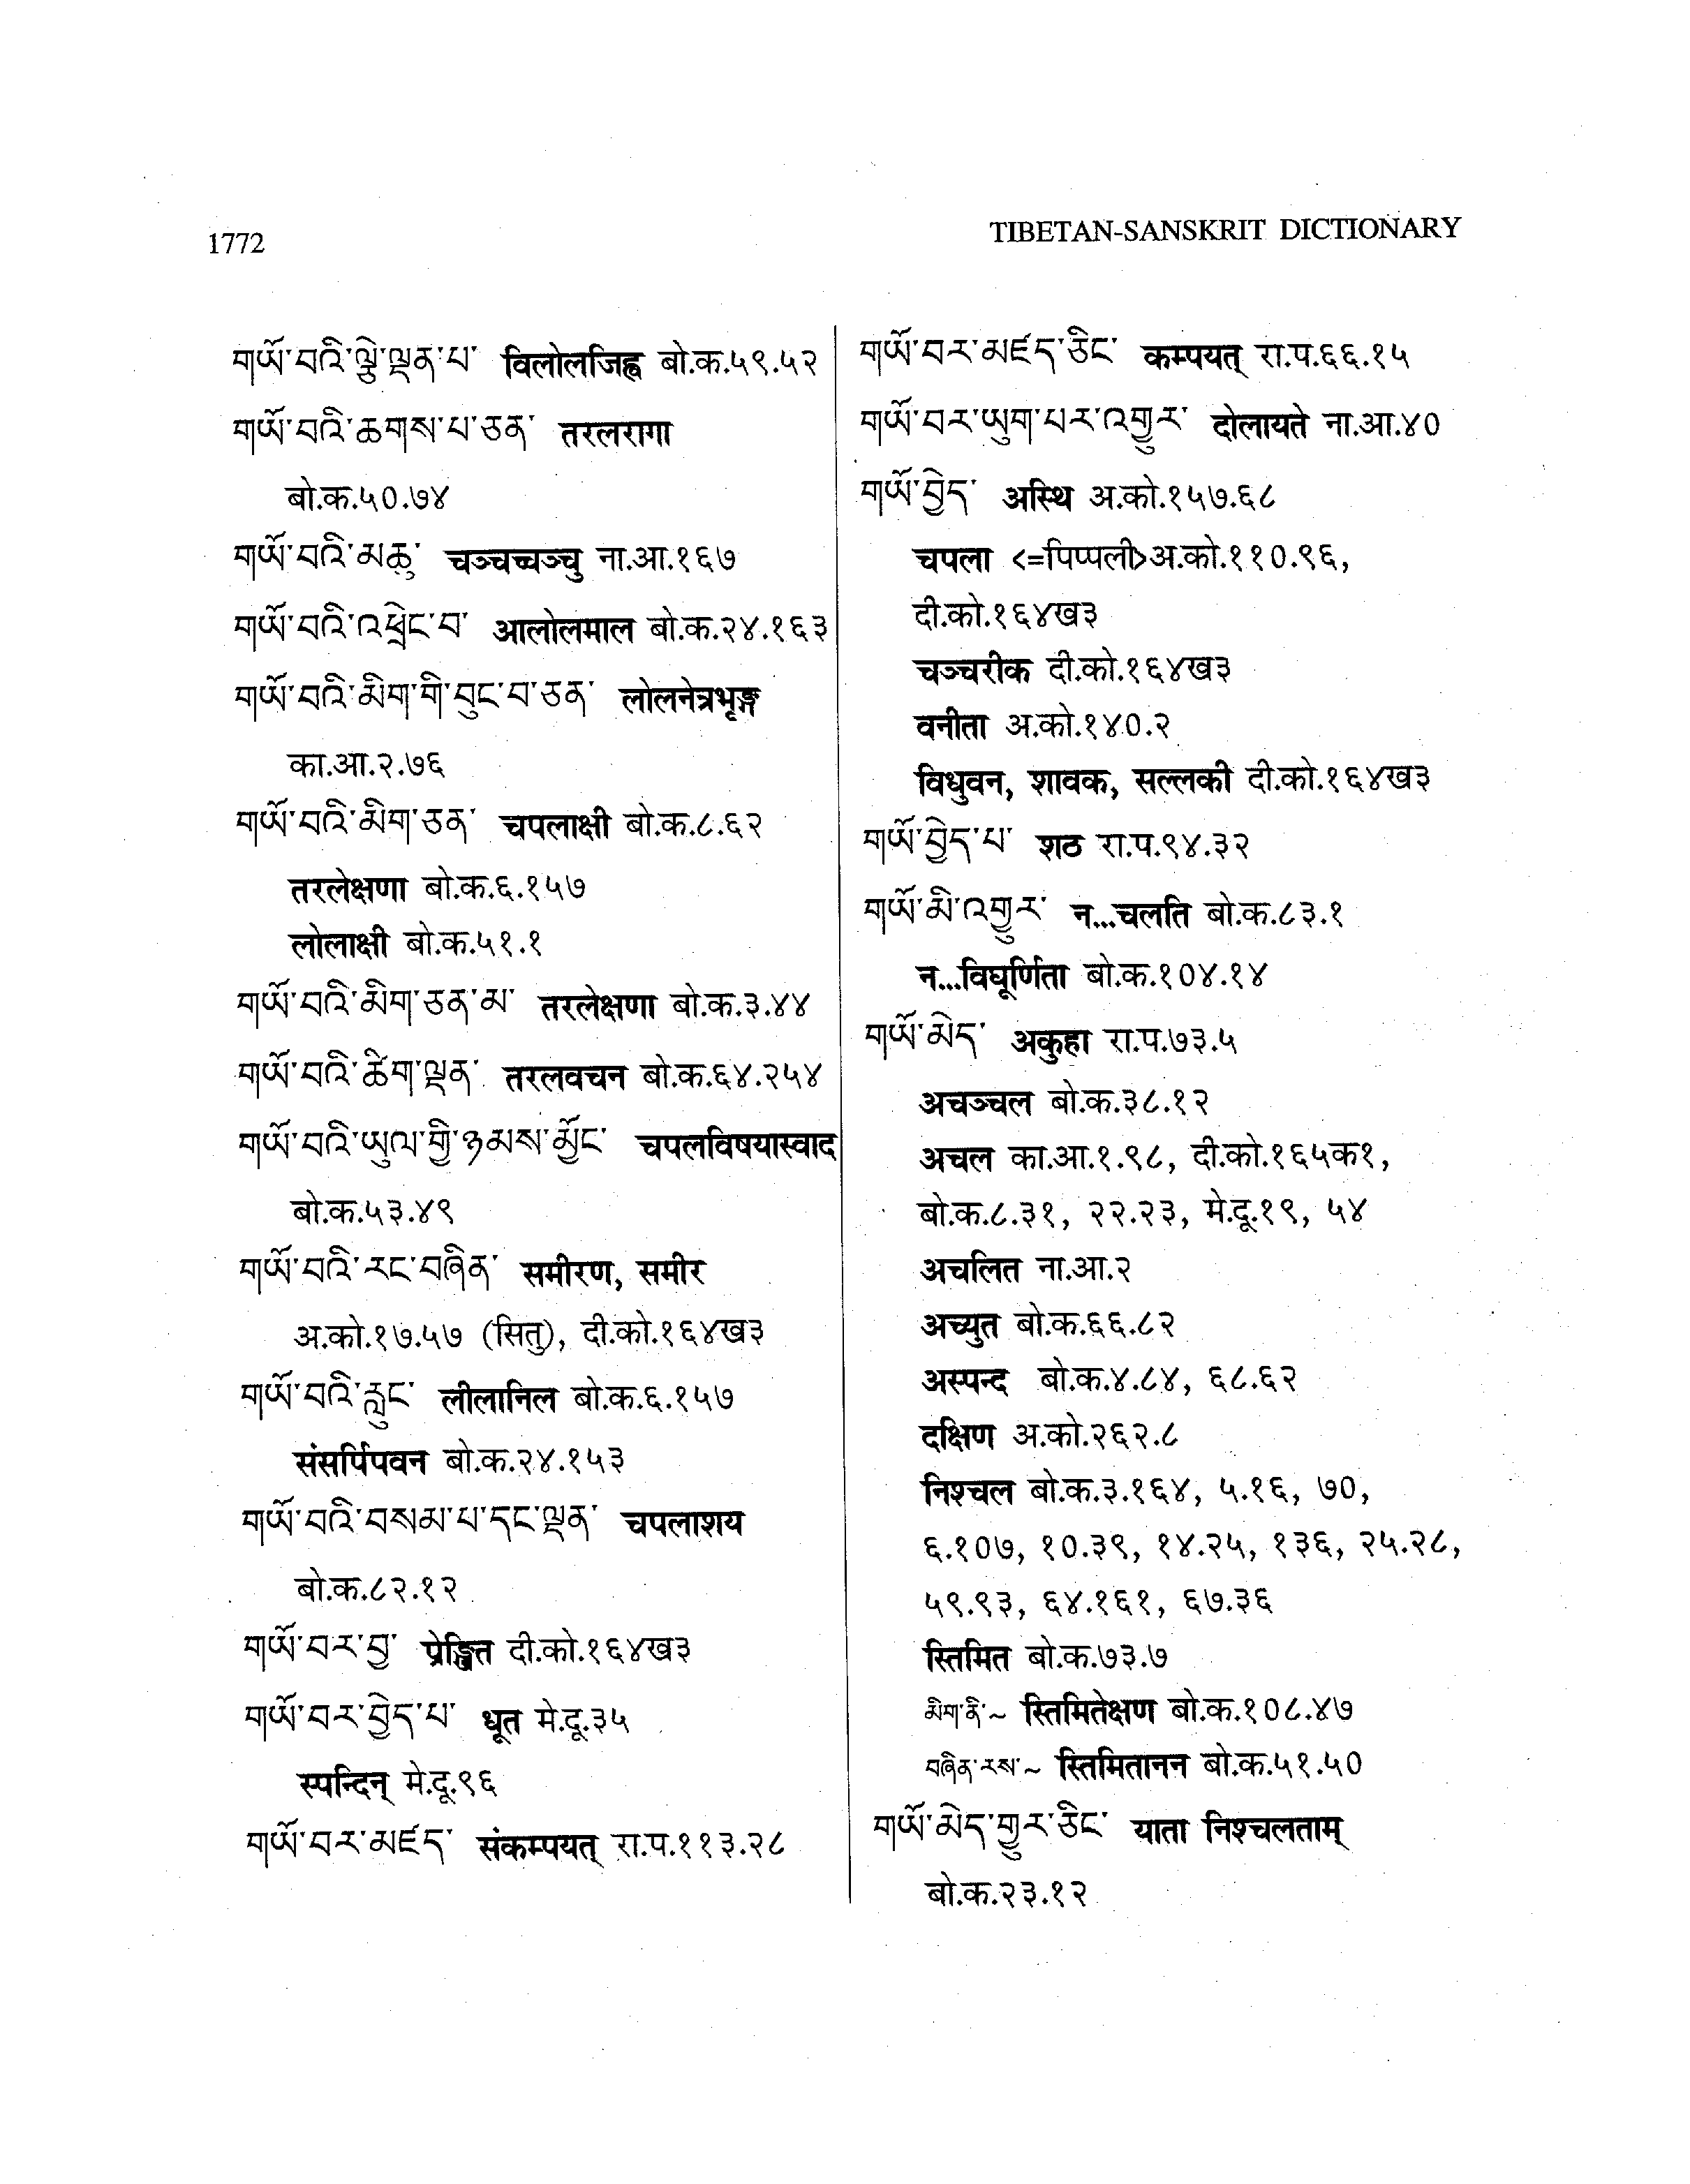 1772
TIBETAN-SANSKRIT DICTIONARY
གཡོ་བའི་ལྕེ་ལྡན་པ་ विलोलजिह्व बो.क.५९.५२
གཡོ་བའི་ཆགས་པ་ཅན་ तरलरागा
बो.क.५०.७४
གཡོ་བའི་མཆུ་ चञ्चच्चञ्चु ना.आ.१६७
གཡོ་བའི་འཕྲེང་བ་ आलोलमाल बो.क.२४.१६३
གཡོ་བའི་མིག་གི་བུང་བ་ཅན་ लोलनेत्रभृङ्ग
का.आ.२.७६
གཡོ་བའི་མིག་ཅན་ चपलाक्षी बो.क.८.६२
तरलेक्षणा बो.क.६.१५७
लोलाक्षी बो.क.५१.१
གཡོ་བའི་མིག་ཅན་མ་ तरलेक्षणा बो.क.३.४४
གཡོ་བའི་ཚིག་ལྡན་ तरलवचन बो.क.६४.२५४
གཡོ་བའི་ཡུལ་གྱི་ཉམས་མྱོང་ चपलविषयास्वाद
बो.क.५३.४९
གཡོ་བའི་རང་བཞིན་ समीरण, समीर
अ.को.१७.५७ (सितु), दी.को.१६४ख३
གཡོ་བའི་རླུང་ लीलानिल बो.क.६.१५७
संसर्पिपवन बो.क.२४.१५३
གཡོ་བའི་བསམ་པ་དང་ལྡན་ चपलाशय
बो.क.८२.१२
གཡོ་བར་བྱ་ प्रेङ्खित दी.को.१६४ख३
གཡོ་བར་བྱེད་པ་ धूत मे.दू.३५
स्पन्दिन् मे.दू.९६
གཡོ་བར་མཛད་ संकम्पयत् रा.प.११३.२८
གཡོ་བར་མཛད་ཅིང་ कम्पयत् रा.प.६६.१५
གཡོ་བར་ཡུག་པར་འགྱུར་ दोलायते ना.आ.४०
གཡོ་བྱེད་ अस्थि अ.को.१५७.६८
चपला <=पिप्पली>अ.को.११०.९६,
दी.को.१६४ख३
चञ्चरीक दी.को.१६४ख३
वनीता अ.को.१४०.२
विधुवन, शावक, सल्लकी दी.को.१६४ख३
གཡོ་བྱེད་པ་ शठ रा.प.९४.३२
གཡོ་མི་འགྱུར་ न...चलति बो.क.८३.१
न...विघूर्णिता बो.क.१०४.१४
གཡོ་མེད་ अकुहा रा.प.७३.५
अचञ्चल बो.क.३८.१२
अचल का.आ.१.९८, दी.को.१६५क१,
बो.क.८.३१, २२.२३, मे.दू.१९, ५४
अचलित ना.आ.२
अच्युत बो.क.६६.८२
अस्पन्द बो.क.४.८४, ६८.६२
दक्षिण अ.को.२६२.८
निश्चल बो.क.३.१६४, ५.१६, ७०,
६.१०७, १०.३९, १४.२५, १३६, २५.२८,
५९.९३, ६४.१६१, ६७.३६
स्तिमित बो.क.७३.७
མིག་ནི་~ स्तिमितेक्षण बो.क.१०८.४७
བཞིན་རས་~ स्तिमितानन बो.क.५१.५०
གཡོ་མེད་གྱུར་ཅིང་ याता निश्चलताम्
बो.क.२३.१२